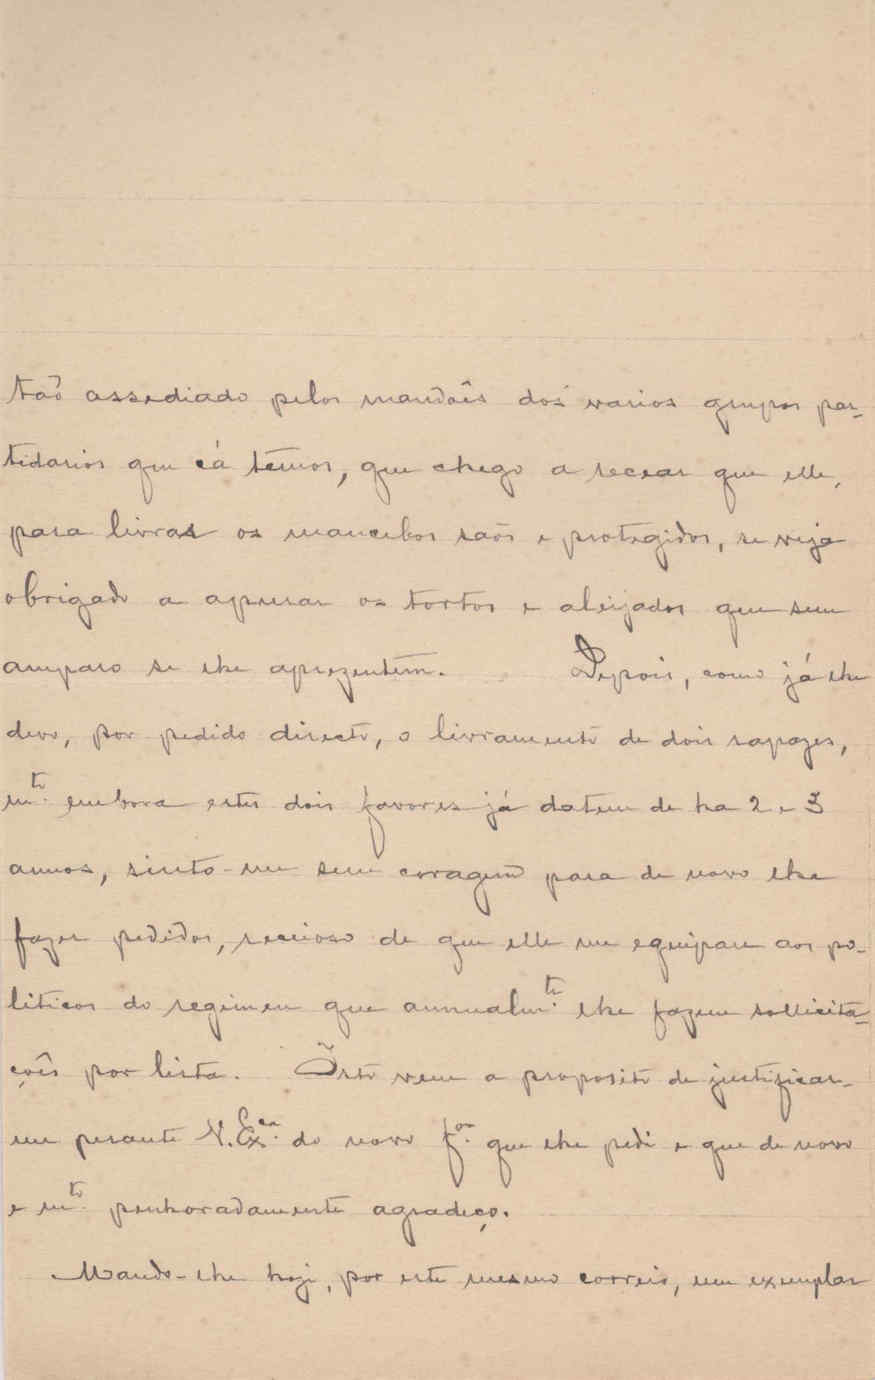 tão assediado pelos mandões dos varios grupos par-
tidarios que cá temos, que chego a recear que elle,
para livrar os mancebos saõs e protegidos, se veja
obrigado a apurar os tortos e aleijados que sem
amparo se lhe aprezentem. Depois, como já lhe
devo, por pedido directo, o livramento de dois rapazes,
m.to embora estes dois favores já datem de ha 2 e 3
annos, sinto-me sem coragem para de novo lhe
fazer pedidos, receioso de que elle me equipare aos po-
liticos do regimen que annualm.te lhe fazem sollicita-
ções por lista. Isto vem a proposito de justificar-
me perante V. Ex.cia do novo f.or que lhe pedi e que de novo
e m.to penhoradamente agradeço.
Mando-lhe hoje, por este mesmo correio, um exemplar